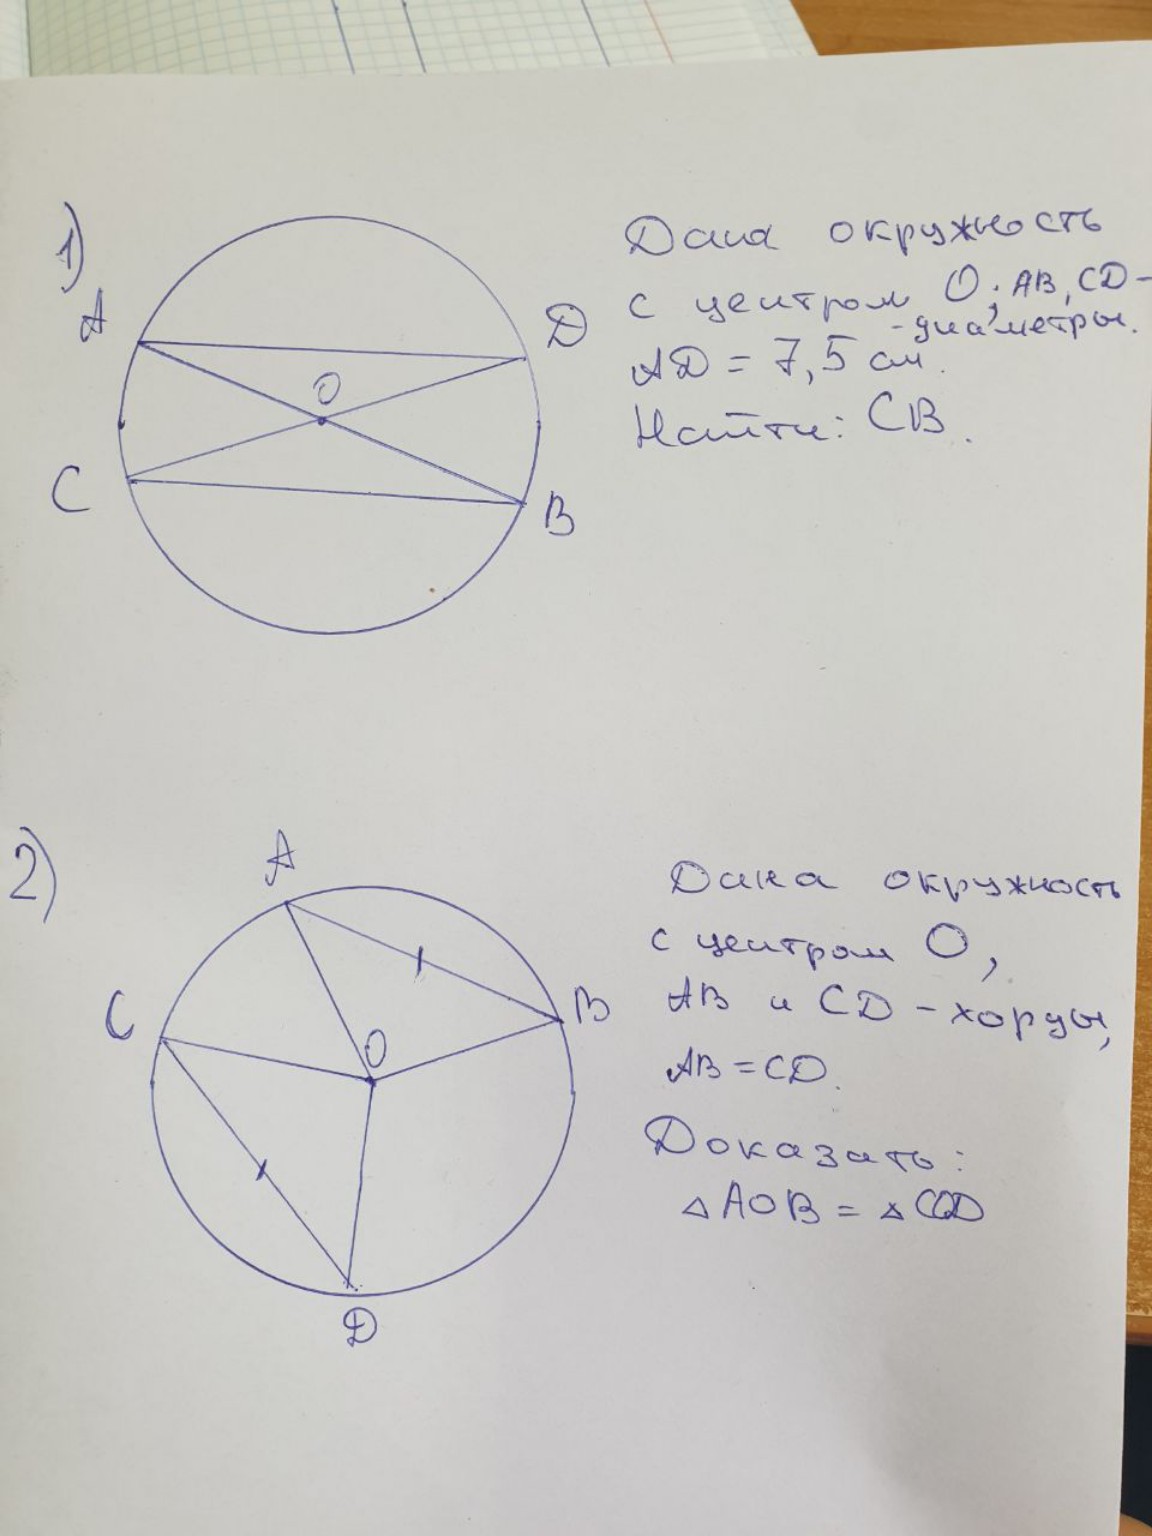 1)
Дана окружность
с центром O; AB, CD -
- диаметры.
AD = 7,5 см.
Найти: CB.
A
D
O
C
B
2)
Дана окружность
с центром O,
AB и CD - хорды,
AB = CD.
Доказать:
△AOB = △COD
A
C
B
O
D